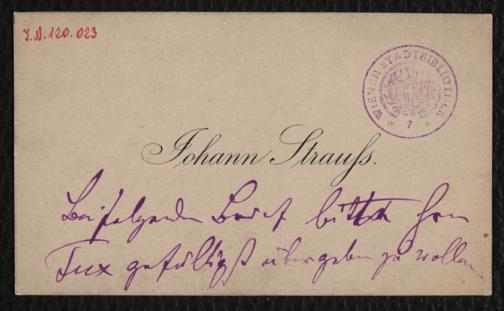 J.N. 120.023
WIENER STADTBIBLIOTHEK
* 7 *
Johann Strauß.
Beifolgenden Brief bitte Herrn
Fux gefälligst übergeben zu wollen